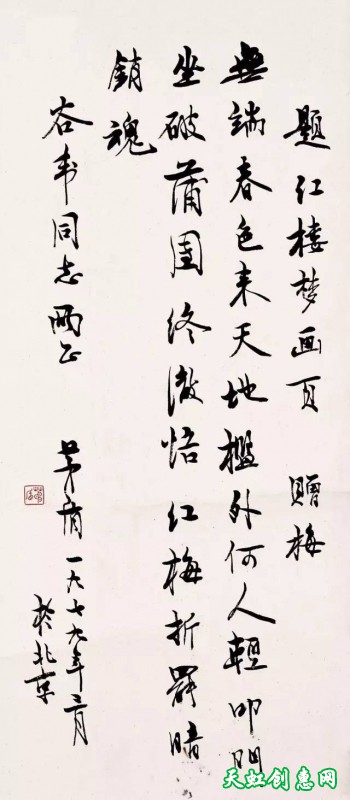 題红楼梦画页 贈梅
無端春色来天地槛外何人輕叩門
坐破蒲團终澈悟红梅折罢暗
銷魂
谷韦同志两正
茅盾一九七九年三月
於北京
天虹创惠网